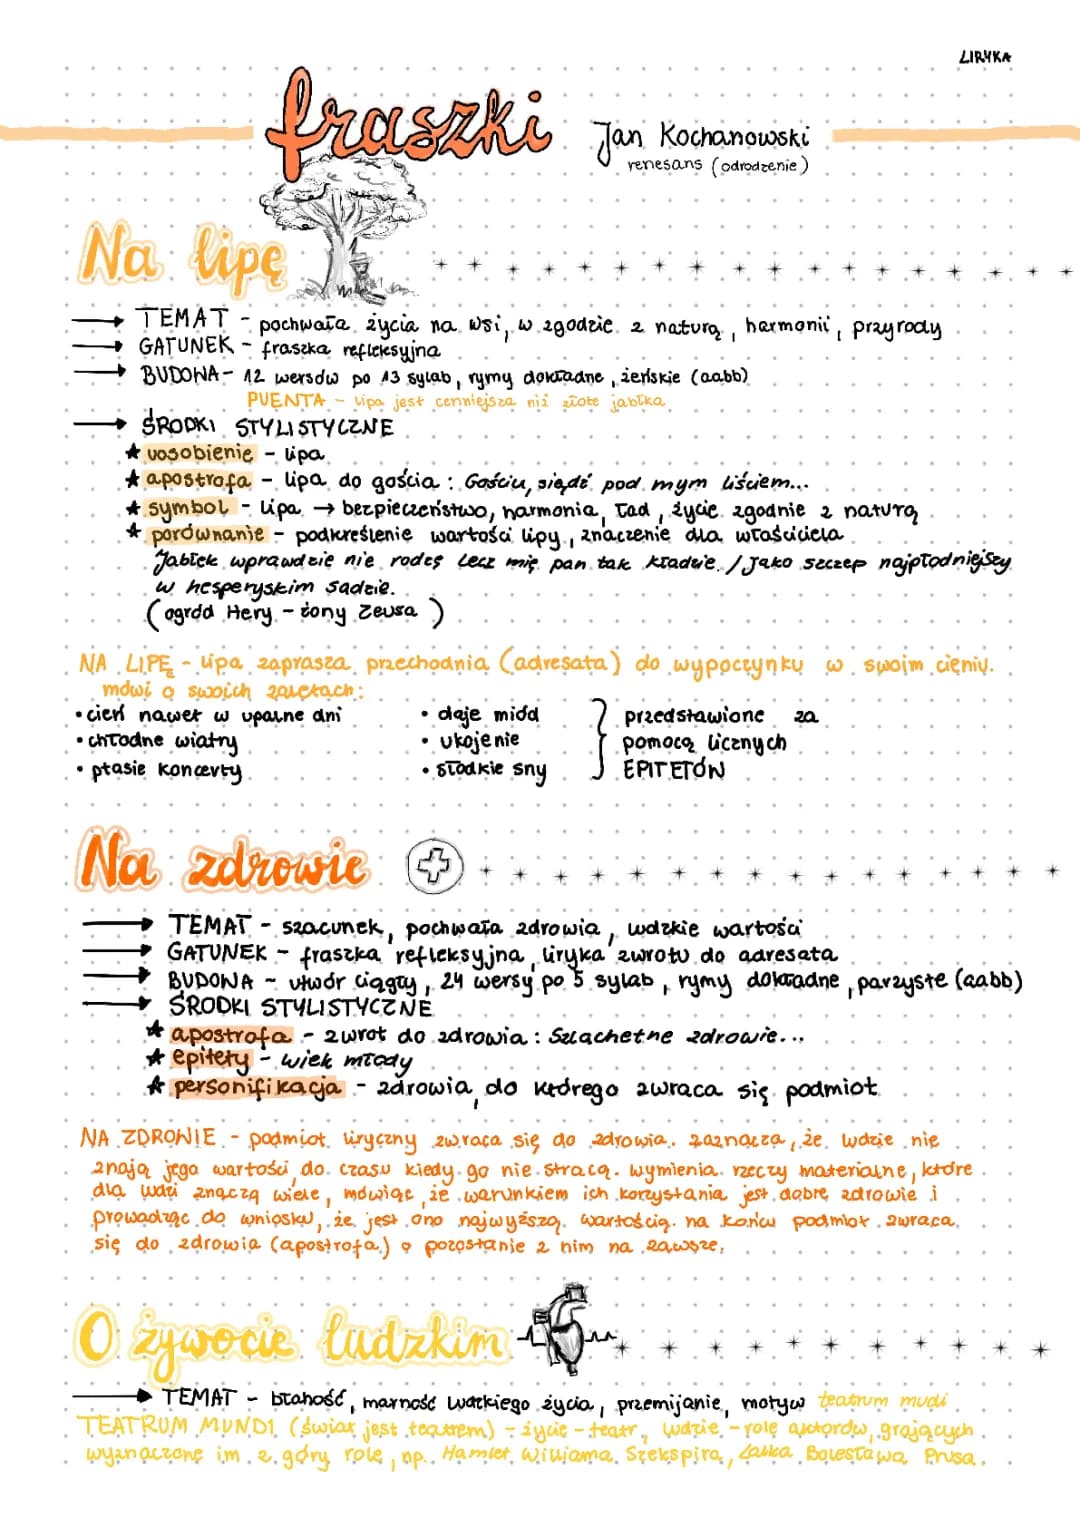 LIRYKA
fraszki
Jan Kochanowski
renesans (odrodzenie)
Na lipę
→ TEMAT - pochwała życia na wsi, w zgodzie z naturą, harmonii, przyrody
→ GATUNEK - fraszka refleksyjna
→ BUDOWA - 12 wersów po 13 sylab, rymy dokładne, żeńskie (aabb)
PUENTA - lipa jest cenniejsza niż złote jabłka
→ ŚRODKI STYLISTYCZNE
★ uosobienie - lipa
★ apostrofa - lipa do gościa: Gościu, siądź pod mym liściem...
★ symbol - lipa → bezpieczeństwo, harmonia, ład, życie zgodnie z naturą
★ porównanie - podkreślenie wartości lipy, znaczenie dla właściciela
Jabłek wprawdzie nie rodzę lecz mię pan tak kładzie. / Jako szczep najpłodniejszy
w hesperyskim sadzie.
(ogród Hery - żony Zeusa)
NA LIPĘ - lipa zaprasza przechodnia (adresata) do wypoczynku w swoim cieniu.
mówi o swoich zaletach:
• cień nawet w upalne dni
• chłodne wiatry
• ptasie koncerty
• daje miód
• ukojenie
• słodkie sny
przedstawione za
pomocą licznych
EPITETÓW
Na zdrowie
→ TEMAT - szacunek, pochwała zdrowia, ludzkie wartości
→ GATUNEK - fraszka refleksyjna, liryka zwrotu do adresata
→ BUDOWA - utwór ciągły, 24 wersy po 5 sylab, rymy dokładne, parzyste (aabb)
→ ŚRODKI STYLISTYCZNE
★ apostrofa - zwrot do zdrowia: Szlachetne zdrowie...
★ epitety - wiek młody
★ personifikacja - zdrowia, do którego zwraca się podmiot
NA ZDROWIE - podmiot liryczny zwraca się do zdrowia. zaznacza, że ludzie nie
znają jego wartości do czasu kiedy go nie stracą. wymienia rzeczy materialne, które
dla ludzi znaczą wiele, mówiąc, że warunkiem ich korzystania jest dobre zdrowie i
prowadząc do wniosku, że jest ono najwyższą wartością. na końcu podmiot zwraca
się do zdrowia (apostrofa) o pozostanie z nim na zawsze.
O żywocie ludzkim
→ TEMAT - błahość, marność ludzkiego życia, przemijanie, motyw teatrum mudi
TEATRUM MUNDI (świat jest teatrem) - życie - teatr, ludzie - rolę aktorów, grających
wyznaczone im z góry role, np. Hamlet Williama Szekspira, Lalka Bolesława Prusa.